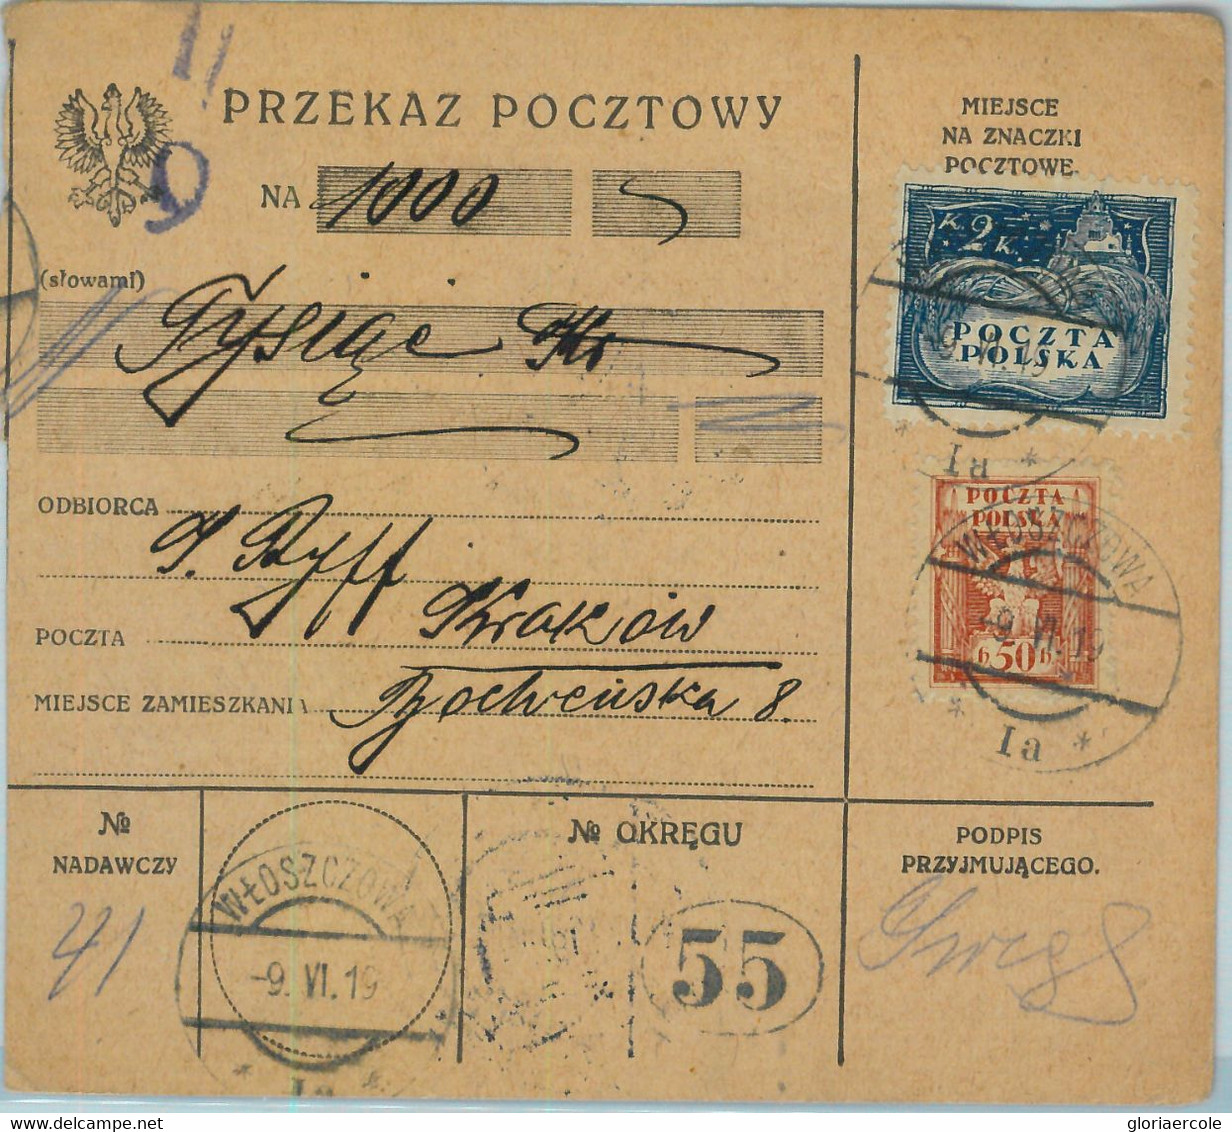 PRZEKAZ POCZTOWY
NA 1000
(słowami)
Tysiąc Kr
ODBIORCA
POCZTA Kraków
MIEJSCE ZAMIESZKANIA 8.
MIEJSCE
NA ZNACZKI
POCZTOWE.
K. 2 K.
POCZTA
POLSKA
Ia
POCZTA
POLSKA
50
WŁOSZCZOWA
-9. VI. 19
Ia
№
NADAWCZY
41
WŁOSZCZOWA
-9. VI. 19
Ia
№ OKRĘGU
55
PODPIS
PRZYJMUJĄCEGO.
gloriaercole